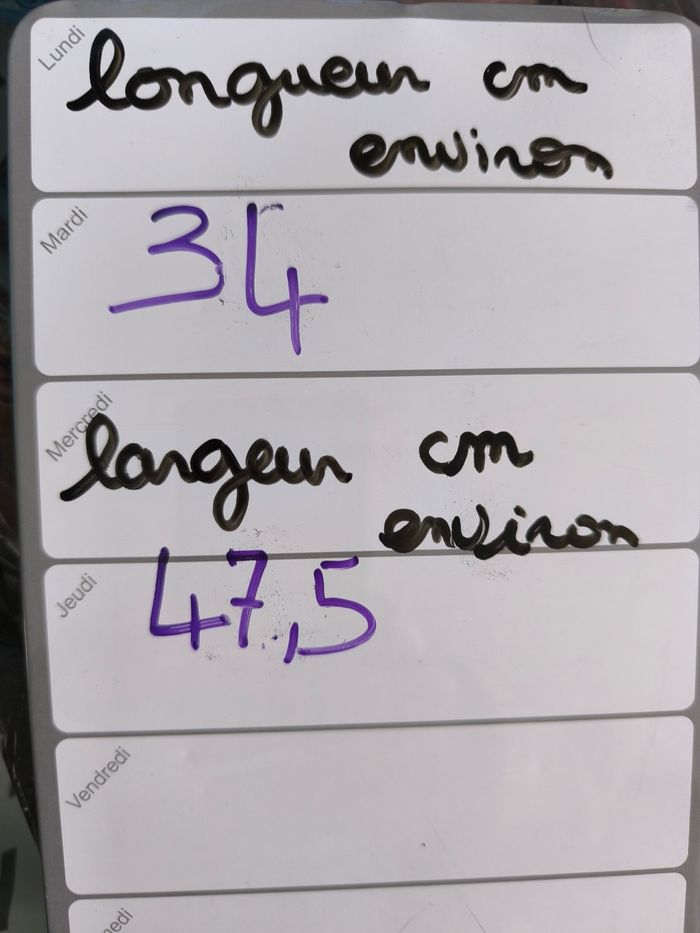 Lundi
longueur cm
environ
Mardi
34
Mercredi
largeur cm
environ
Jeudi
47,5
Vendredi